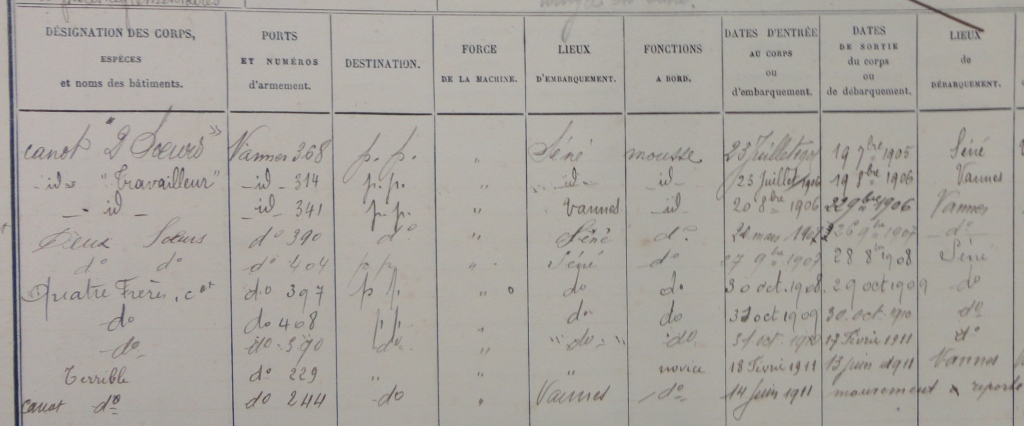 DÉSIGNATION DES CORPS, ESPÈCES et noms des bâtiments. PORTS ET NUMÉROS d'armement. DESTINATION. FORCE DE LA MACHINE. LIEUX D'EMBARQUEMENT. FONCTIONS A BORD. DATES D'ENTRÉE AU CORPS ou d'embarquement. DATES DE SORTIE du corps ou de débarquement. LIEUX de DÉBARQUEMENT.
canot "2 Sœurs" Vannes 368 p.p. " Séné mousse 23 Juillet 19 7bre 1905 Séné
id "Travailleur" id 314 p.p. " id id 23 juillet 1906 19 8bre 1906 Vannes
id id 341 p.p. " Vannes id 20 8bre 1906 9bre 1906 Vannes
Deux Sœurs do 390 do " Séné do. mars 1907 9bre 1907 do
do do do 404 p.p. " Séné do 27 9bre 1907 28 8bre 1908 Séné
Quatre Frères, cot do 397 p.p. " do do 30 oct. 1908 29 oct 1909 do
do do 408 p.p. " do do 31 oct 1909 30 oct. 1910 do
do do 390 do " do do 31 oct 1910 17 Février 1911 do
Terrible do 229 " " " novice 18 Février 1911 13 juin 1911 Vannes
canot do do 244 do " Vannes do 14 juin 1911 mouvement reporté